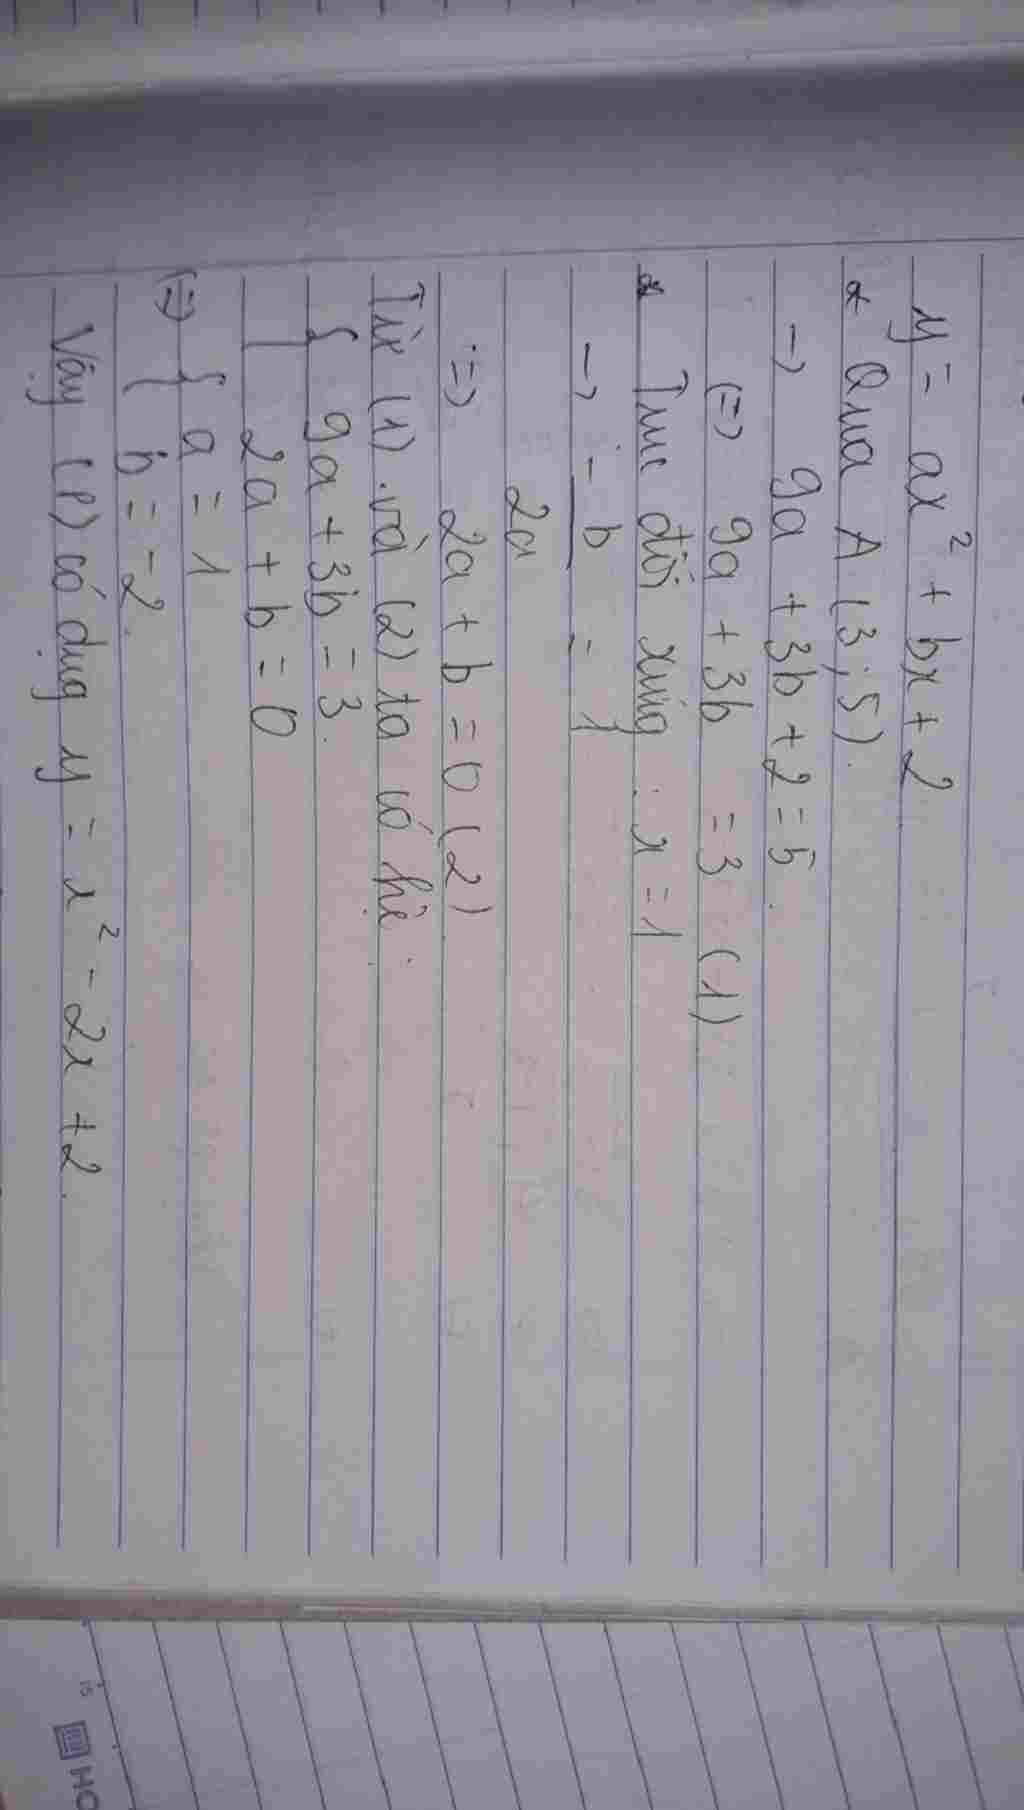 y = ax² + bx + 2
* Qua A (3; 5).
→ 9a + 3b + 2 = 5.
(=) 9a + 3b = 3 (1)
* Trục đối xứng : x = 1
→ - b = 1
2a
=) 2a + b = 0 (2)
Từ (1) và (2) ta có hệ :
{ 9a + 3b = 3.
2a + b = 0
(=) { a = 1
b = -2.
Vậy (P) có dạng y = x² - 2x + 2.
15
HO